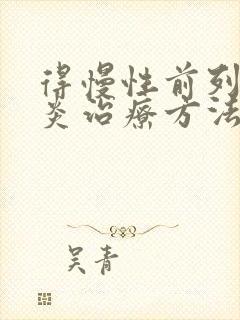 得慢性前列
炎治疗方法
吴青